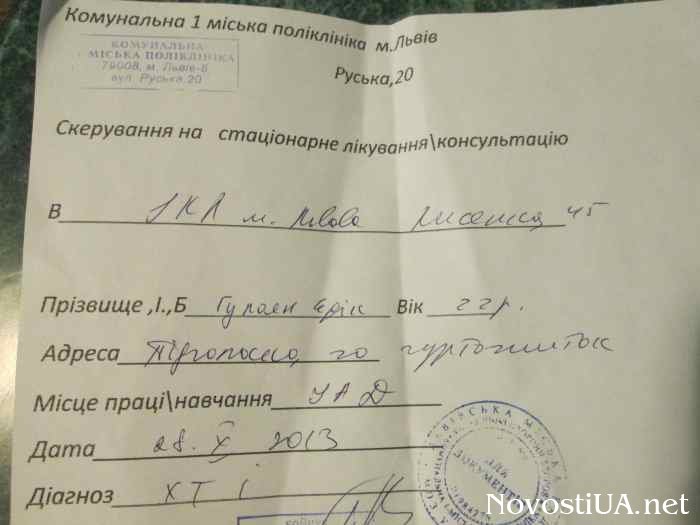 Комунальна 1 міська поліклініка м.Львів
КОМУНАЛЬНА
МІСЬКА ПОЛІКЛІНІКА
79008, м. Львів-8
вул. Руська,20
Руська,20
Скерування на стаціонарне лікування\консультацію
В м. Львова 45
Прізвище ,І.,Б Ерік Вік 22р.
Адреса гуртожиток
Місце праці\навчання УАД
Дата 28. X 2013
Діагноз ХТ І
ЛЬВІВСЬКА МІСЬКА
ДЛЯ
ДОКУМЕНТІВ
NovostiUA.net